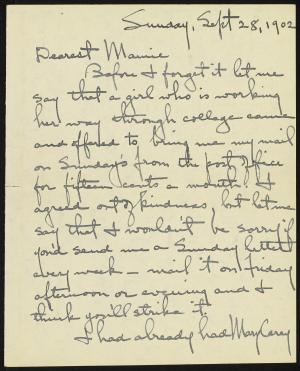 Sunday, Sept 28, 1902
Dearest Mamie
Before I forget it let me
say that a girl who is working
her way through college came
and offered to bring me my mail
on Sunday's from the post office
for fifteen cents a month. I
agreed out of kindness, but let me
say that I wouldn't be sorry if
you'd send me a Sunday letter
every week — mail it on Friday
afternoon or evening and I
think you'll strike it.
I had already had Mary Carey